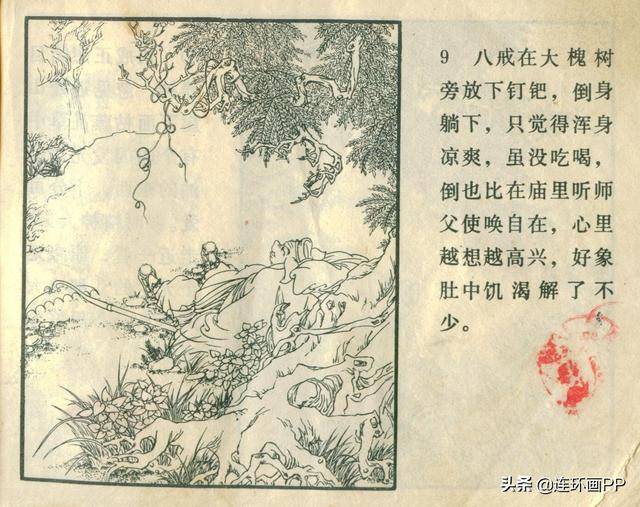 9 八戒在大槐树
旁放下钉钯，倒身
躺下，只觉得浑身
凉爽，虽没吃喝，
倒也比在庙里听师
父使唤自在，心里
越想越高兴，好象
肚中饥渴解了不
少。
头条 @连环画PP